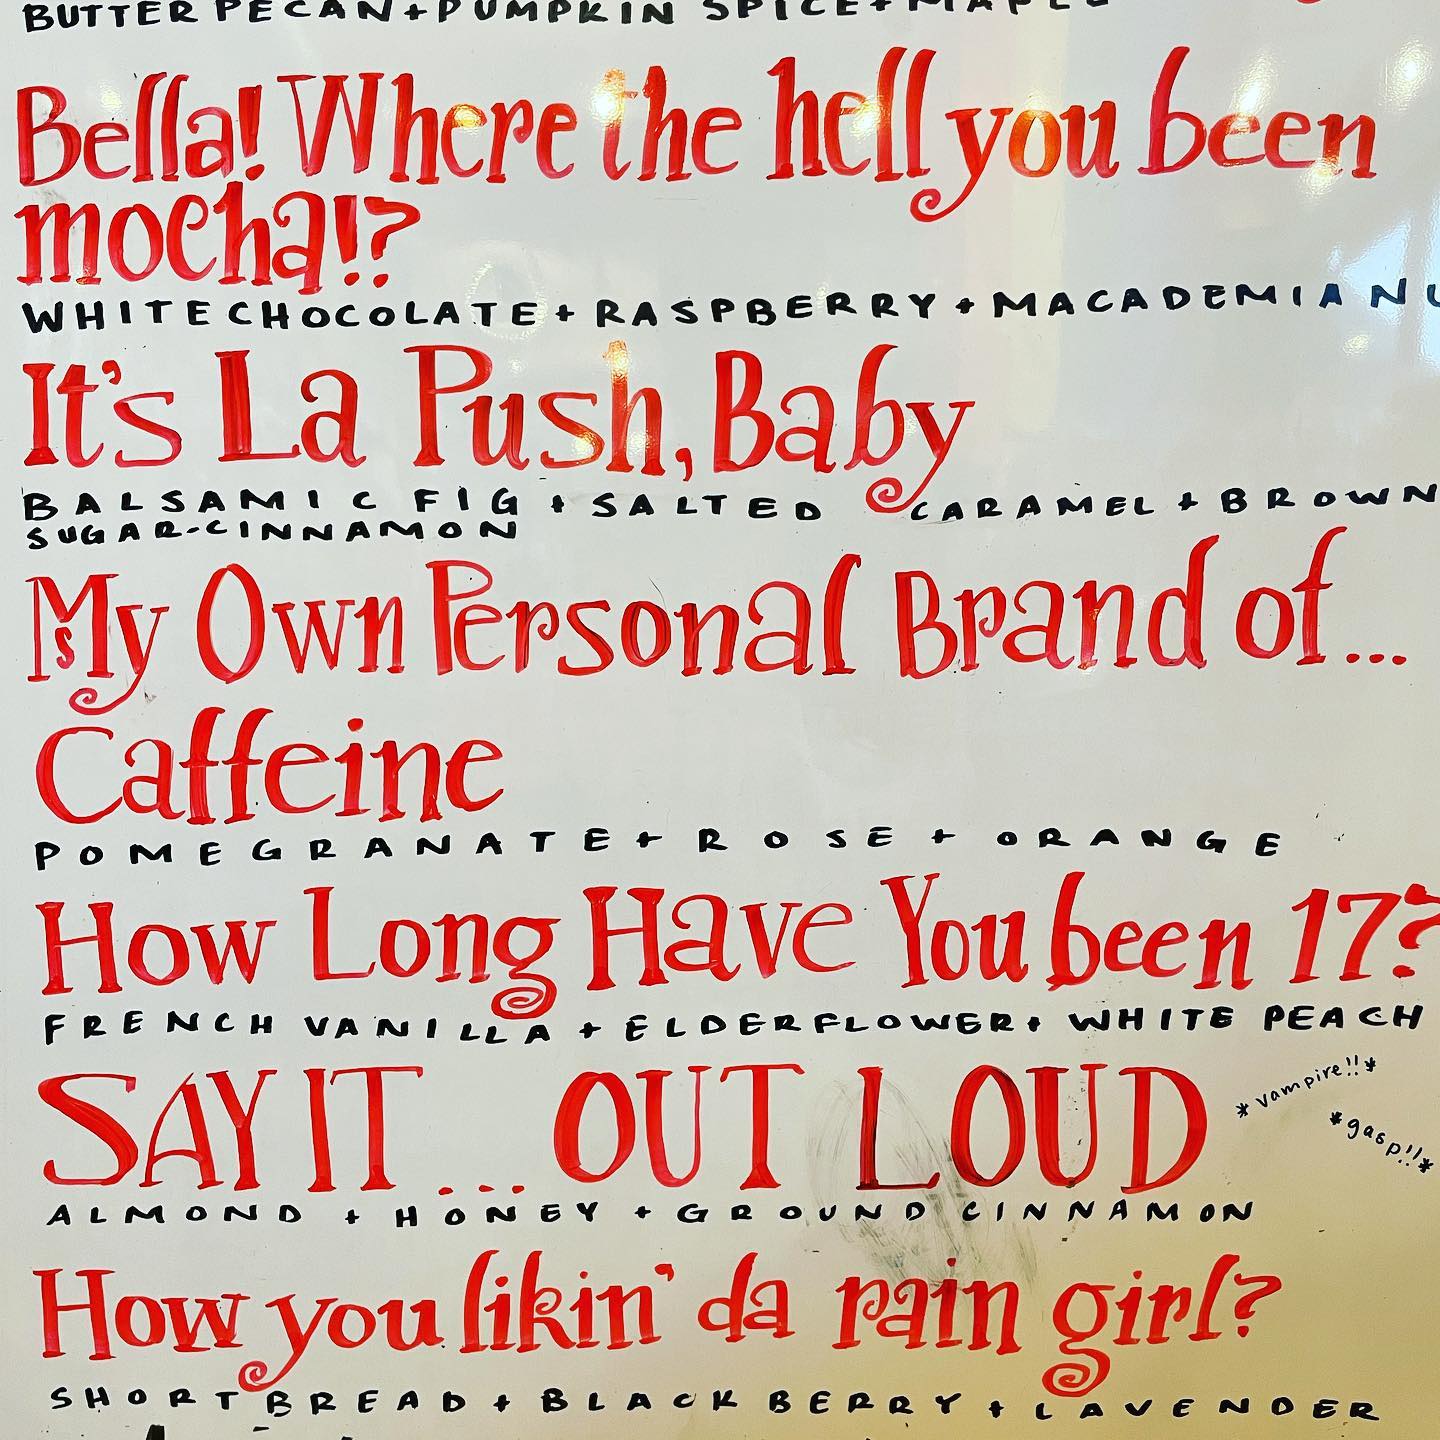 BUTTER PECAN + PUMPKIN SPICE + MAPLE
Bella! Where the hell you been
mocha!?
WHITE CHOCOLATE + RASPBERRY + MACADEMIA NU
It's La Push, Baby
BALSAMIC FIG + SALTED CARAMEL + BROWN
SUGAR-CINNAMON
My Own Personal Brand of...
Caffeine
POMEGRANATE + ROSE + ORANGE
How Long Have You been 17?
FRENCH VANILLA + ELDERFLOWER + WHITE PEACH
SAY IT ... OUT LOUD
*vampire!!*
*gasp!!*
ALMOND + HONEY + GROUND CINNAMON
How you likin' da rain girl?
SHORTBREAD + BLACKBERRY + LAVENDER